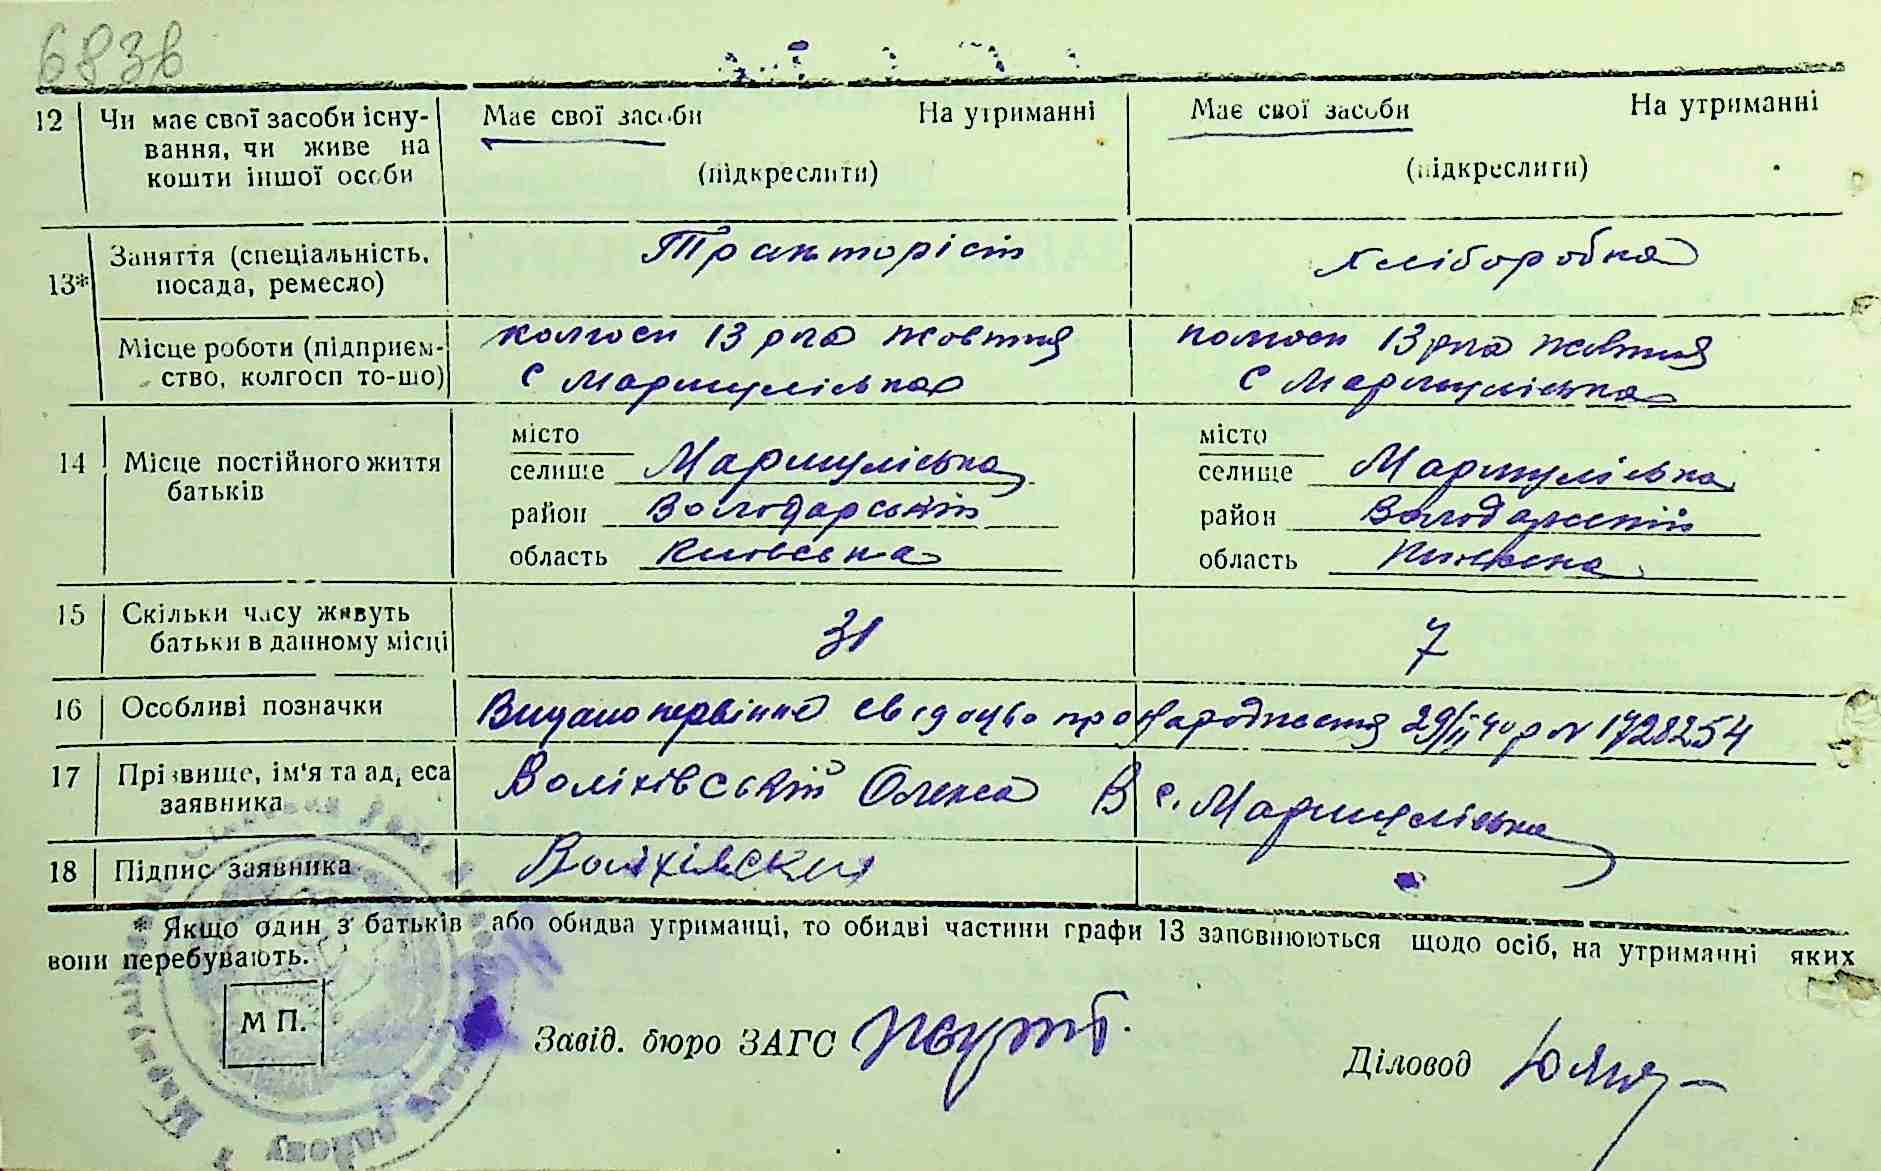 683в
12 Чи має свої засоби існу-
вання, чи живе на
кошти іншої особи
Має свої засоби На утриманні
(підкреслити)
Має свої засоби На утриманні
(підкреслити)
13* Заняття (спеціальність,
посада, ремесло)
Тракторіст
Хліборобка
Місце роботи (підприєм-
ство, колгосп то-що)
колгосп 13 рча жовтня
с Марнуліська
колгосп 13 рча жовтня
с Марнуліська
14 Місце постійного життя
батьків
місто
селище Марнуліська
район Володарський
область Київська
місто
селище Марнуліська
район Володарський
область Київська
15 Скільки часу живуть
батьки в данному місці
31
7
16 Особливі позначки
Видано первінне свідоцво про народження 29/II 40 р № 1728254
17 Прізвище, ім'я та адреса
заявника
Воліхівський Олекса В с.
18 Підпис заявника
* Якщо один з батьків або обидва утриманці, то обидві частини графи 13 заповнюються щодо осіб, на утриманні яких
вони перебувають.
М П.
Завід. бюро ЗАГС
Діловод
району